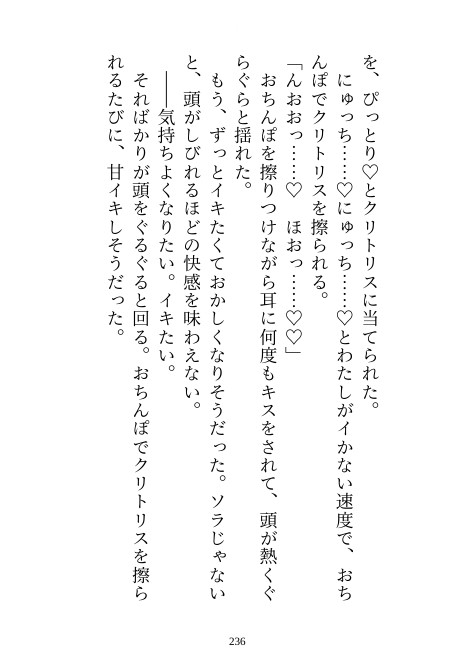 を、ぴっとり♡とクリトリスに当てられた。
　にゅっち……♡にゅっち……♡とわたしがイかない速度で、おち
んぽでクリトリスを擦られる。
「んおおっ……♡　ほおっ……♡♡」
　おちんぽを擦りつけながら耳に何度もキスをされて、頭が熱くぐ
らぐらと揺れた。
　もう、ずっとイキたくておかしくなりそうだった。ソラじゃない
と、頭がしびれるほどの快感を味わえない。
　――気持ちよくなりたい。イキたい。
　そればかりが頭をぐるぐると回る。おちんぽでクリトリスを擦ら
れるたびに、甘イキしそうだった。
236